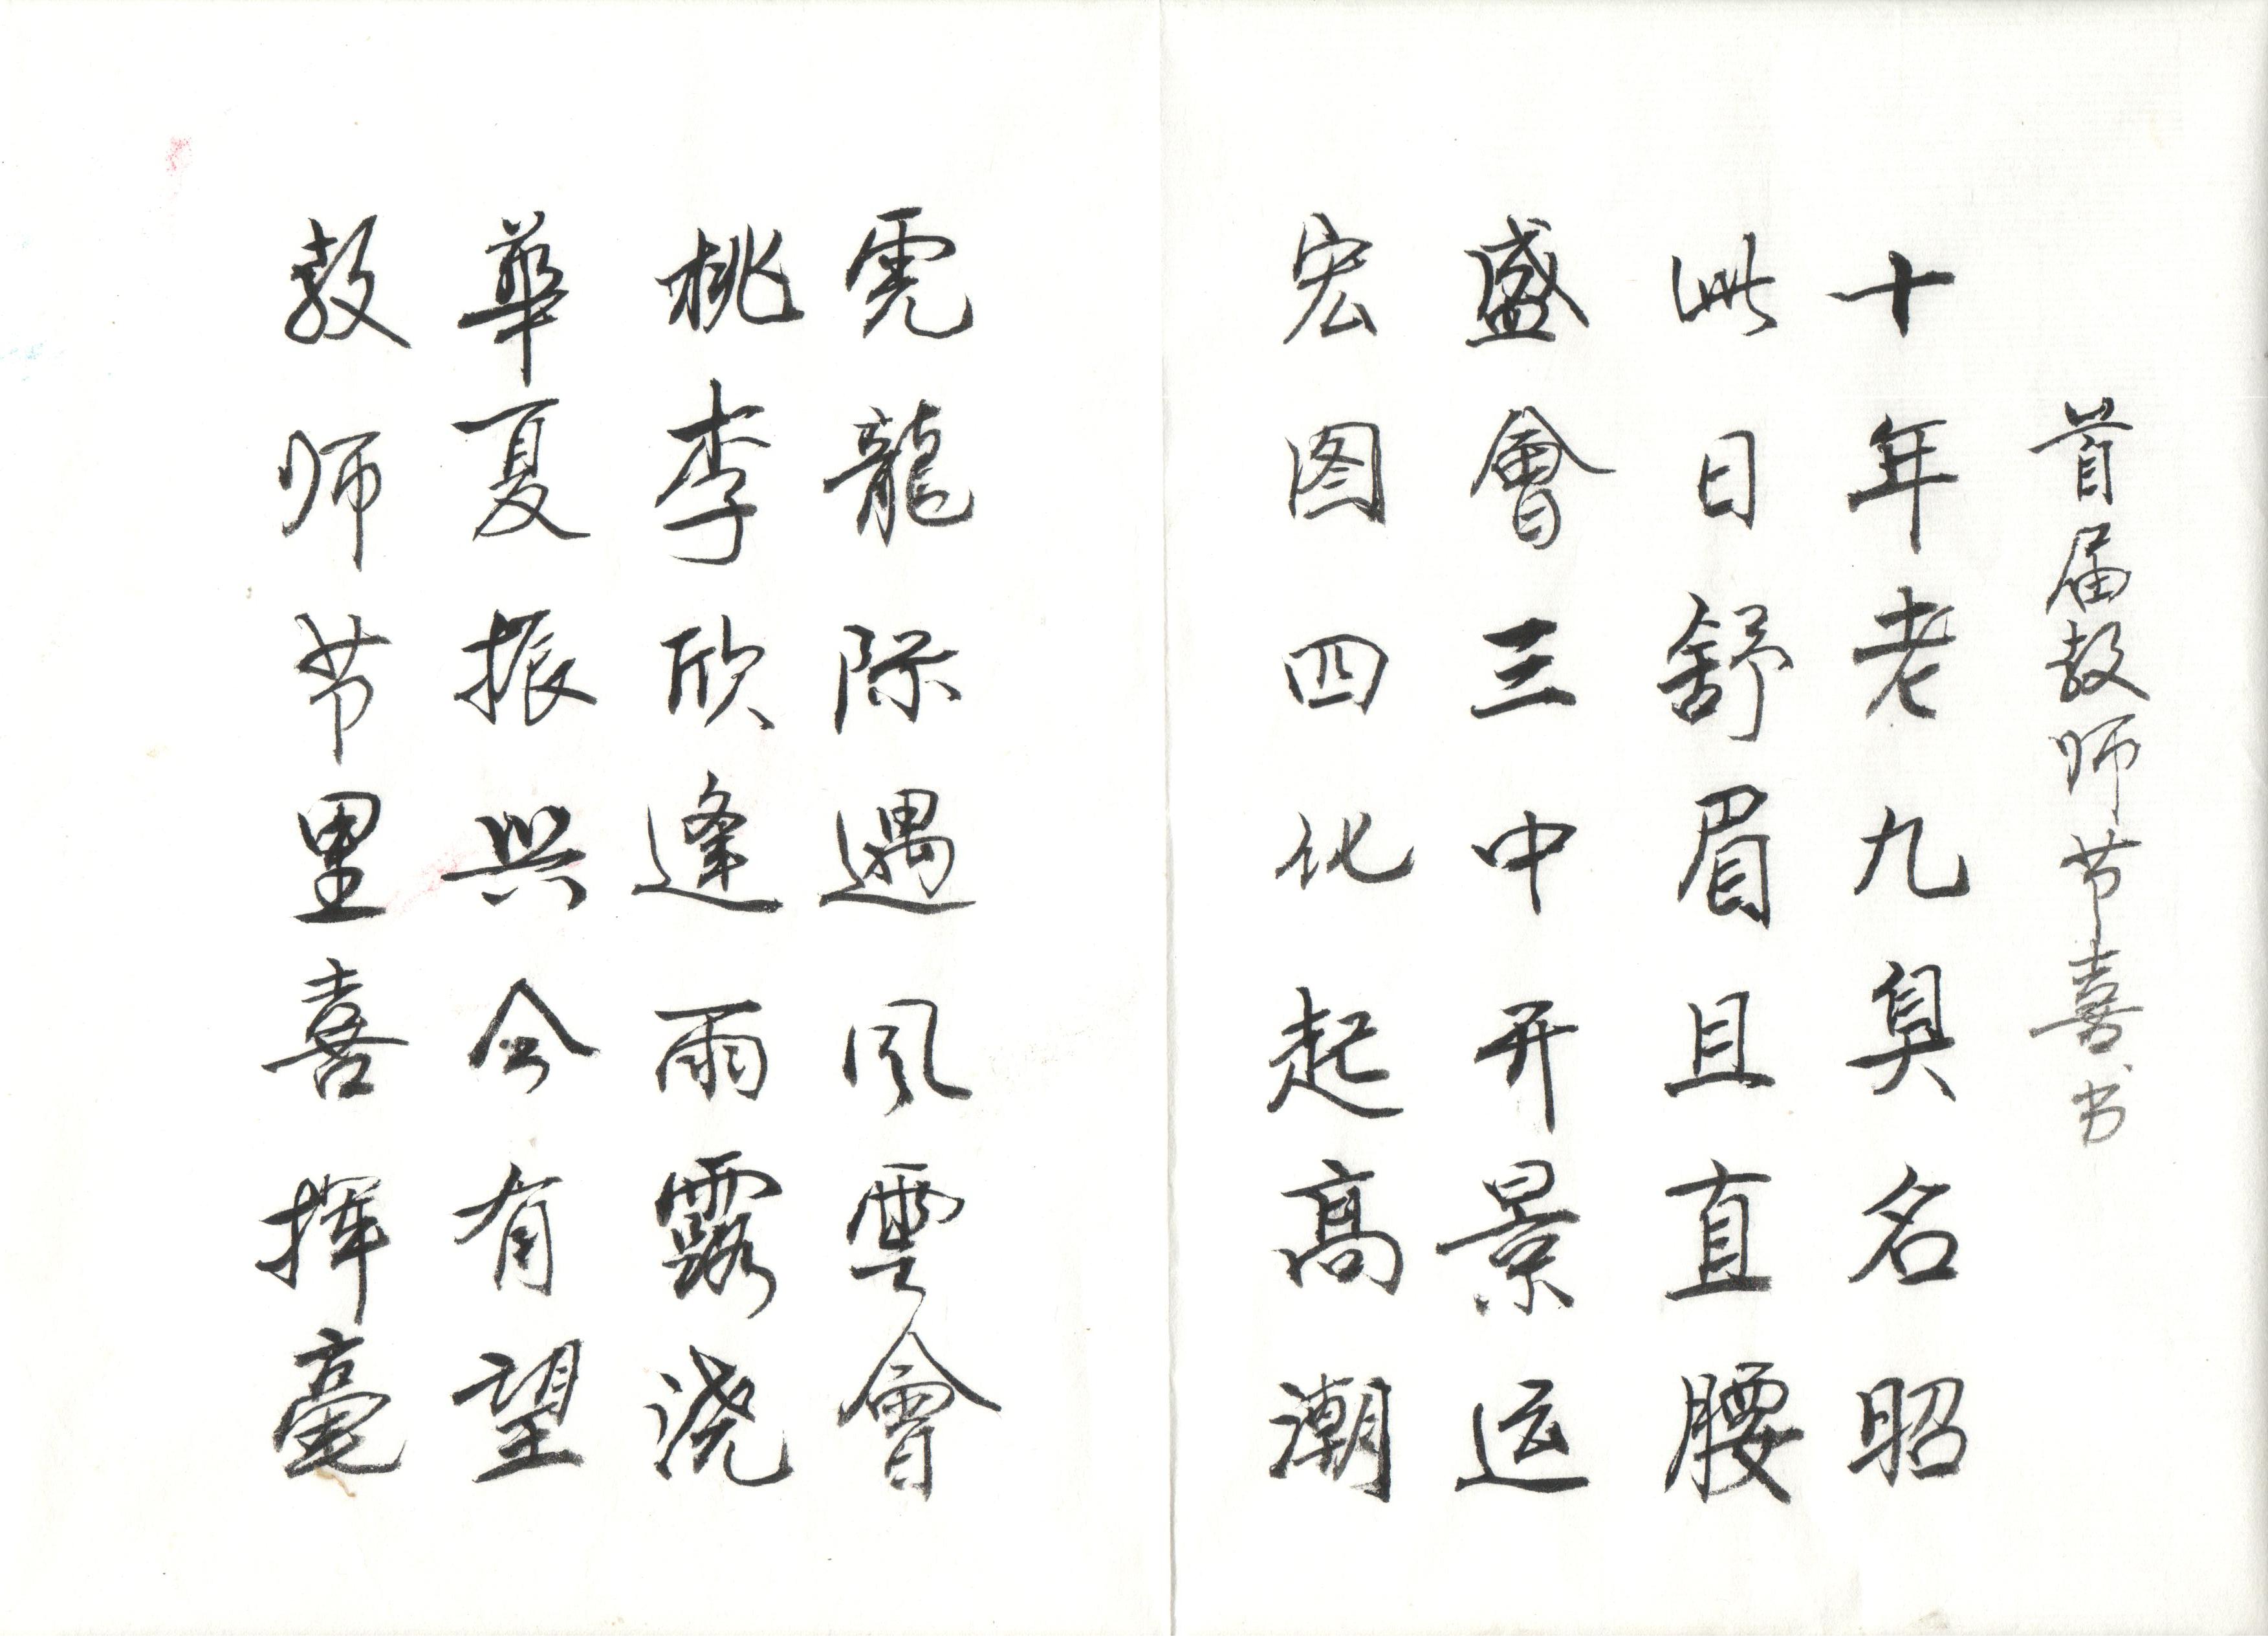 首届教师节喜书
十年老九臭名昭
此日舒眉且直腰
盛會三中开景运
宏图四化起高潮
虎龍际遇风雲會
桃李欣逢雨露浇
華夏振兴今有望
教师节里喜揮毫